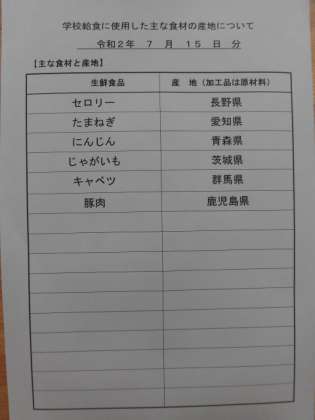 学校給食に使用した主な食材の産地について
令和2年 7 月 15 日 分
【主な食材と産地】
生鮮食品 産 地（加工品は原材料）
セロリー 長野県
たまねぎ 愛知県
にんじん 青森県
じゃがいも 茨城県
キャベツ 群馬県
豚肉 鹿児島県